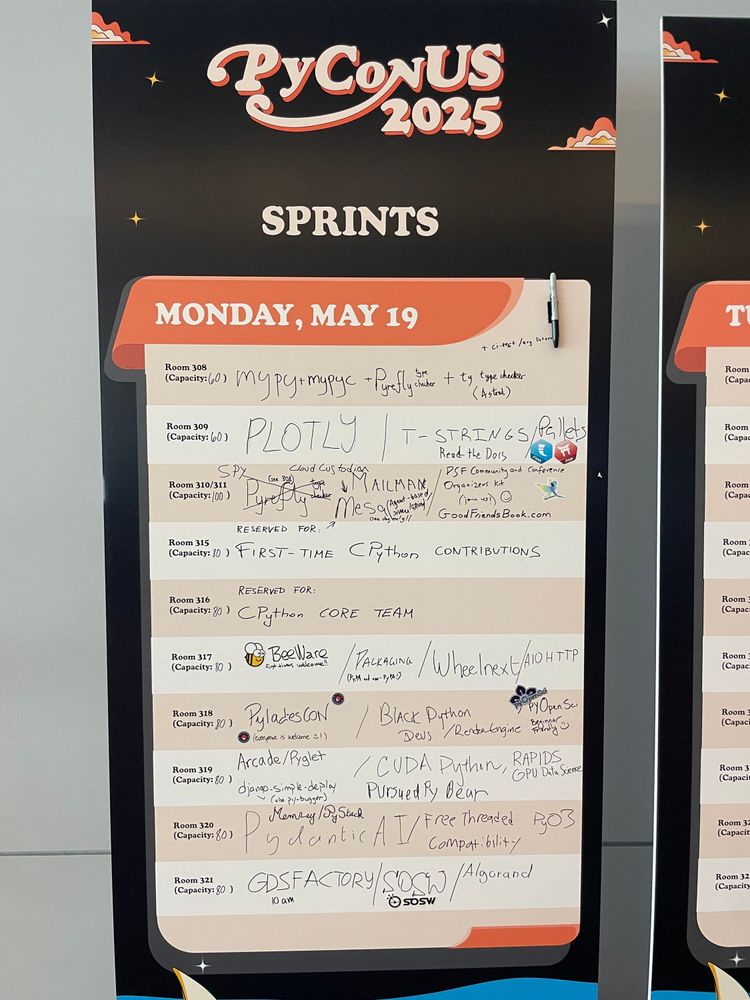 PyConUS
2025
SPRINTS
MONDAY, MAY 19
+ ci-test /any
Room 308
(Capacity: 60)
mypy + mypyc + Pyrefly type checker + ty type checker
(Astral)
Room 309
(Capacity: 60)
PLOTLY / T-STRINGS / Pallets
Read the Docs
Room 310/311
(Capacity: 100)
SPY
Cloud Custodian
(see 308)
Pyrefly type checker
MAILMAN
Mesa (Agent-based simulation)
PSF Community and Conference
Organizers Kit
(join us!)
GoodFriendsBook.com
Room 315
(Capacity: 80)
RESERVED FOR:
FIRST-TIME CPython CONTRIBUTIONS
Room 316
(Capacity: 80)
RESERVED FOR:
CPython CORE TEAM
Room 317
(Capacity: 80)
BeeWare
First timers welcome!!
/ PACKAGING / Wheelnext / AIOHTTP
Room 318
(Capacity: 80)
PyladiesCON
(everyone is welcome :)!)
/ BLACK Python
Devs / RenderEngine
PyOpenSci
Beginner
friendly
Room 319
(Capacity: 80)
Arcade/Pyglet
django-simple-deploy
(aka py-bugger)
/ CUDA Python, RAPIDS
GPU Data Science
PursuedPyBear
Room 320
(Capacity: 80)
Memray/PyStack
Pydantic AI / Free Threaded PyO3
Compatibility
Room 321
(Capacity: 80)
GDSFACTORY / SOSW / Algorand
10 am
SOSW
TU
Room
(Capac
Room
(Capac
Room
(Capac
Room 3
(Capac
Room 3
(Capac
Room 3
(Capac
Room 3
(Capac
Room 3
(Capac
Room 32
(Capac
Room 32
(Capac